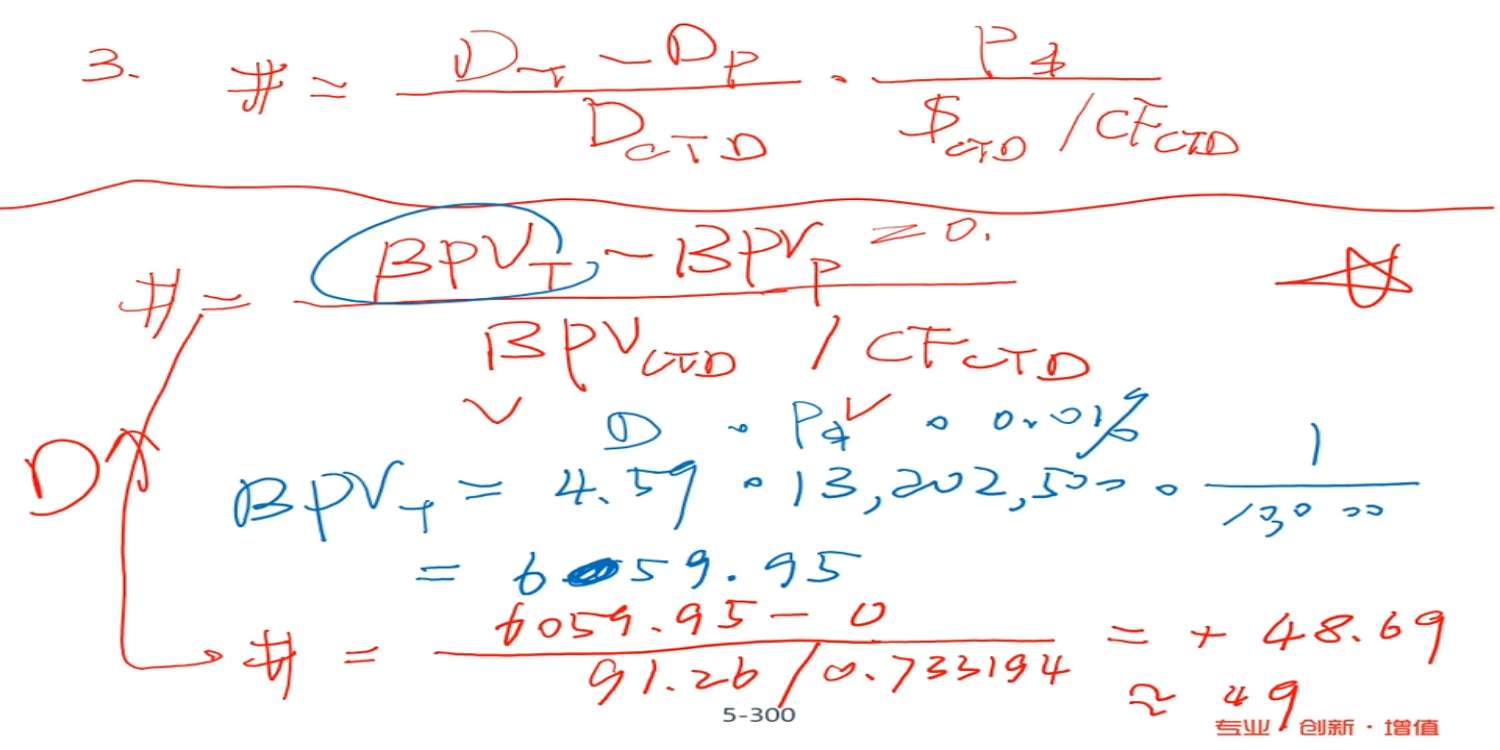 3. # = D_T - D_P / D_CTD · P_$ / $_CTD / CF_CTD
# = BPV_T - BPV_P = 0. / BPV_CTD / CF_CTD
D · P_$ · 0.01%
D↑ BPV_T = 4.59 · 13,202,500 · 1 / 10000
= 6059.95
# = 6059.95 - 0 / 91.26 / 0.733194 = + 48.69
≈ 49
5-300
专业 · 创新 · 增值